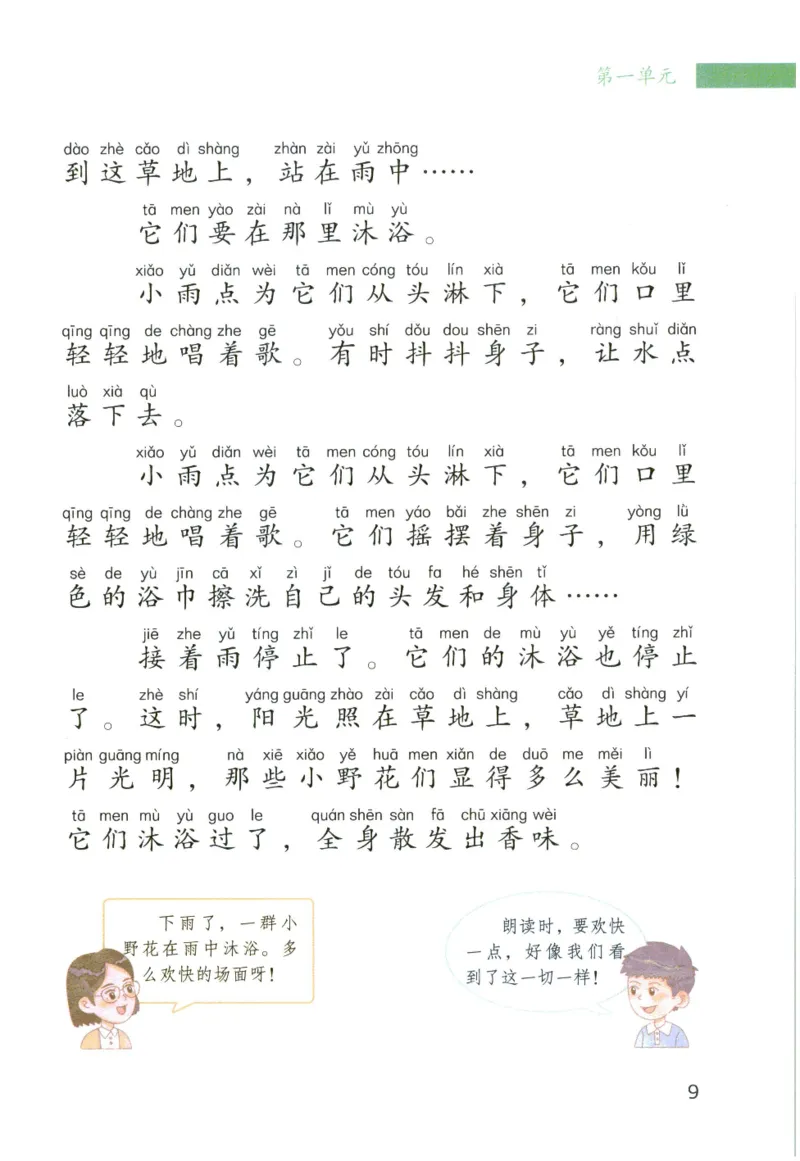 第一单元
dào zhè cǎo dì shàng zhàn zài yǔ zhōng
到这草地上，站在雨中……
tā men yào zài nà lǐ mù yù
它们要在那里沐浴。
xiǎo yǔ diǎn wèi tā men cóng tóu lín xià tā men kǒu lǐ
小雨点为它们从头淋下，它们口里
qīng qīng de chàng zhe gē yǒu shí dǒu dou shēn zi ràng shuǐ diǎn
轻轻地唱着歌。有时抖抖身子，让水点
luò xià qù
落下去。
xiǎo yǔ diǎn wèi tā men cóng tóu lín xià tā men kǒu lǐ
小雨点为它们从头淋下，它们口里
qīng qīng de chàng zhe gē tā men yáo bǎi zhe shēn zi yòng lǜ
轻轻地唱着歌。它们摇摆着身子，用绿
sè de yù jīn cā xǐ zì jǐ de tóu fa hé shēn tǐ
色的浴巾擦洗自己的头发和身体……
jiē zhe yǔ tíng zhǐ le tā men de mù yù yě tíng zhǐ
接着雨停止了。它们的沐浴也停止
le zhè shí yáng guāng zhào zài cǎo dì shàng cǎo dì shàng yí
了。这时，阳光照在草地上，草地上一
piàn guāng míng nà xiē xiǎo yě huā men xiǎn de duō me měi lì
片光明，那些小野花们显得多么美丽！
tā men mù yù guo le quán shēn sàn fā chū xiāng wèi
它们沐浴过了，全身散发出香味。
下雨了，一群小
野花在雨中沐浴。多
么欢快的场面呀！
朗读时，要欢快
一点，好像我们看
到了这一切一样！
9